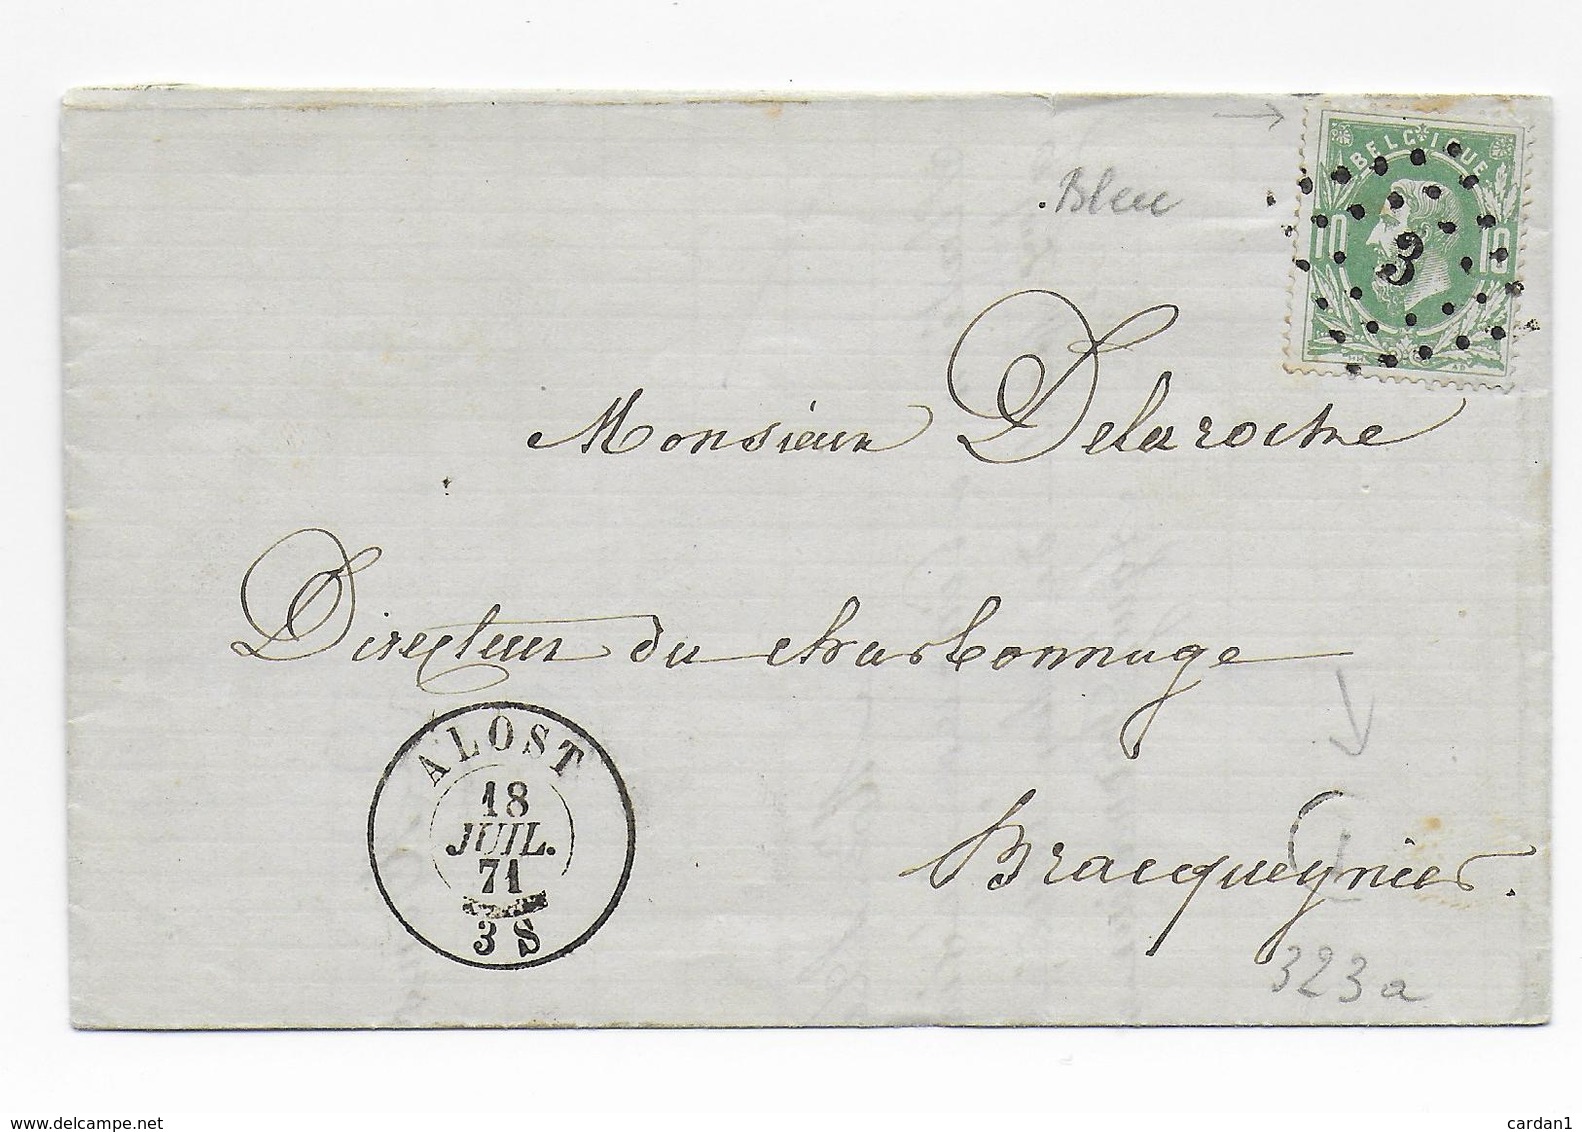 BELGIQUE
10 10
3
Bleu
Monsieur Delaroche
Directeur du charbonnage
ALOST
18
JUIL.
71
3 S
Bracquegnies.
323a
www.delcampe.net
cardan1